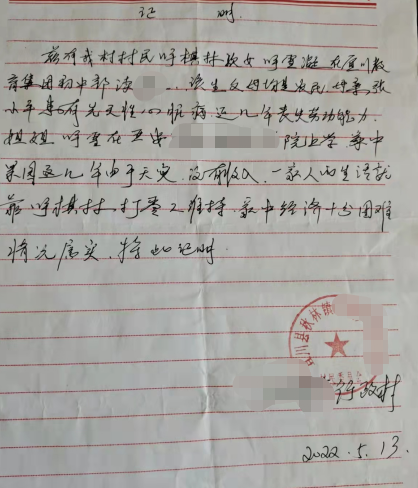 证 明
兹有我村村民呼棋林次女呼雪凝 在宜川教
育集团初中部读 该生父母均是农民 母亲张
小平患有先天性心脏病 近几年丧失劳动能力
姐姐呼雪在 院上学 家中
果园这几年由于天灾 没有收入 一家人的生活就
靠呼棋林 打零工维持 家中经济十分困难
情况属实、特此证明
宜川县秋林镇
许政村
2022.5.13.